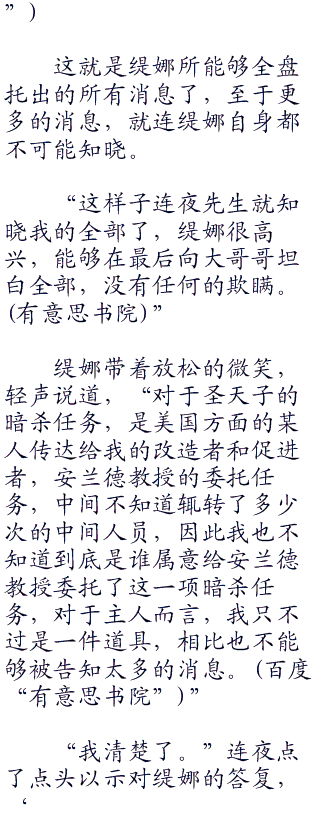 ”)
这就是缇娜所能够全盘
托出的所有消息了，至于更
多的消息，就连缇娜自身都
不可能知晓。
“这样子连夜先生就知
晓我的全部了，缇娜很高
兴，能够在最后向大哥哥坦
白全部，没有任何的欺瞒。
(有意思书院)”
缇娜带着放松的微笑，
轻声说道，“对于圣天子的
暗杀任务，是美国方面的某
人传达给我的改造者和促进
者，安兰德教授的委托任
务，中间不知道辄转了多少
次的中间人员，因此我也不
知道到底是谁属意给安兰德
教授委托了这一项暗杀任
务，对于主人而言，我只不
过是一件道具，相比也不能
够被告知太多的消息。(百度
“有意思书院”)”
“我清楚了。”连夜点
了点头以示对缇娜的答复，
‘